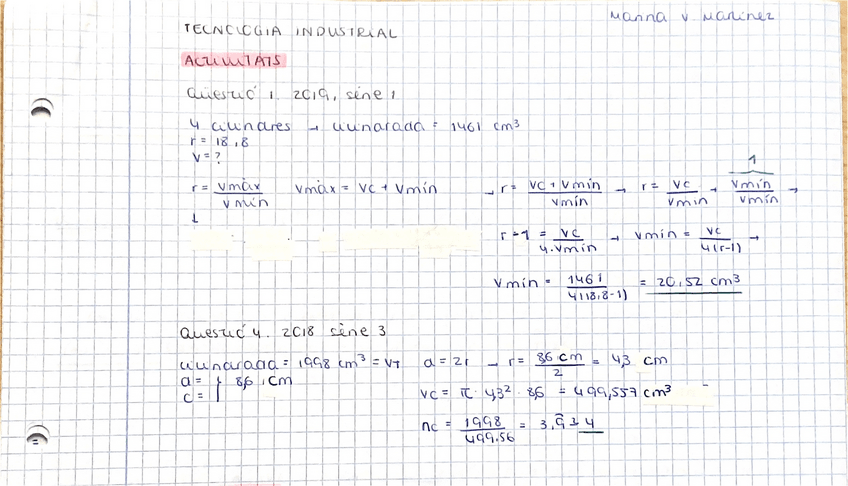 Marina V Marínez
TECNOLOGIA INDUSTRIAL
ACTIVITATS
Qüestió 1. 2019, sèrie 1
4 cilindres → cilindrada = 1461 cm³
r = 18,8
V = ?
r = Vmàx / Vmín Vmàx = Vc + Vmín → r = Vc + Vmín / Vmín → r = Vc / Vmín + Vmín / Vmín → 1
r - 1 = Vc / 4·Vmín → Vmín = Vc / 4(r-1) →
Vmín = 1461 / 4(18,8-1) = 20,52 cm³
Qüestió 4. 2018 sèrie 3
cilindrada = 1998 cm³ = VT d = 2r → r = 8,6 cm / 2 = 4,3 cm
d = } 8,6 cm
c =
Vc = π · 4,3² · 8,6 = 499,557 cm³
nc = 1998 / 499.56 = 3,9 ≃ 4